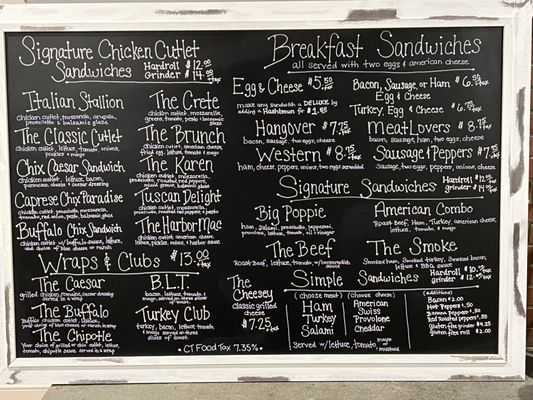 Signature Chicken Cutlet
Sandwiches Hardroll $12.00
Grinder $14.00
Italian Stallion
chicken cutlet, mozzarella, arugula,
prosciutto & balsamic glaze
The Classic Cutlet
chicken cutlet, lettuce, tomato, onion,
pickles & mayo
Chix Caesar Sandwich
chicken cutlet, lettuce, bacon,
parmesan cheese & caesar dressing
Caprese Chix Paradise
chicken cutlet, prosciutto, mozzarella,
tomato, red onion, pesto, balsamic glaze
Buffalo Chix Sandwich
chicken cutlet w/ buffalo sauce, lettuce,
and choice of blue cheese or ranch
The Crete
chicken cutlet, mozzarella,
The Brunch
chicken cutlet, american cheese,
fried egg, lettuce, tomato & mayo
The Karen
chicken cutlet, mozzarella,
prosciutto, roasted red peppers,
mixed greens, balsamic glaze
Tuscan Delight
chicken cutlet, mozzarella,
prosciutto, roasted red peppers & pesto
The HarborMac
chicken cutlet, american cheese,
lettuce, pickles, onion, & harbor sauce
Wraps & Clubs $13.00 +tax
The Caesar
grilled chicken, romaine, caesar dressing
The Buffalo
Buffalo chicken cutlet, lettuce,
your choice of blue cheese or ranch in wrap
The Chipotle
Your choice of grilled or chix cutlet, lettuce,
tomato, chipotle sauce in a wrap
B.L.T.
bacon, lettuce, tomato &
mayo, served on three slices
of toast
Turkey Club
turkey, bacon, lettuce, tomato
& mayo served on three
slices of toast.
* CT Food Tax 7.35% *
Breakfast Sandwiches
all served with two eggs & american cheese
Egg & Cheese $5.50
make any sandwich a DELUXE by
adding a Hashbrown for $1.50
Bacon, Sausage, or Ham $6.50
Egg & Cheese
Turkey, Egg & Cheese $6.75
Hangover $7.75
bacon, sausage, two eggs, cheese
MeatLovers $8.75
bacon, sausage, ham, two eggs, cheese
Western $8.75
ham, cheese, peppers, onions, two eggs scrambled
Sausage & Peppers $7.75
Sausage, two eggs, peppers, onions, cheese
Signature Sandwiches Hardroll $12.00
grinder $14.00
Big Poppie
ham, Salami, prosciutto, pepperoni,
provolone, lettuce, tomato, oil, vinegar
American Combo
Roast Beef, Ham, Turkey, american cheese,
lettuce, tomato, & mayo
The Beef
Roast Beef, lettuce, tomato, w/ horseradish
The Smoke
Smoked Ham, Smoked turkey, Smoked bacon,
lettuce & BBQ sauce
The
Cheesey
classic grilled
cheese
$7.25
Simple Sandwiches Hardroll $10.50
grinder $12.50
(choose meat)
Ham
Turkey
Salami
(choose cheese)
American
Swiss
Provolone
Cheddar
Served w/ lettuce, tomato, mayo
or mustard
(additions)
Bacon $2.00
Hot Peppers $1.50
Banana peppers $1.50
Red Roasted peppers $1.50
Gluten free grinder $4.25
Gluten free roll $2.00